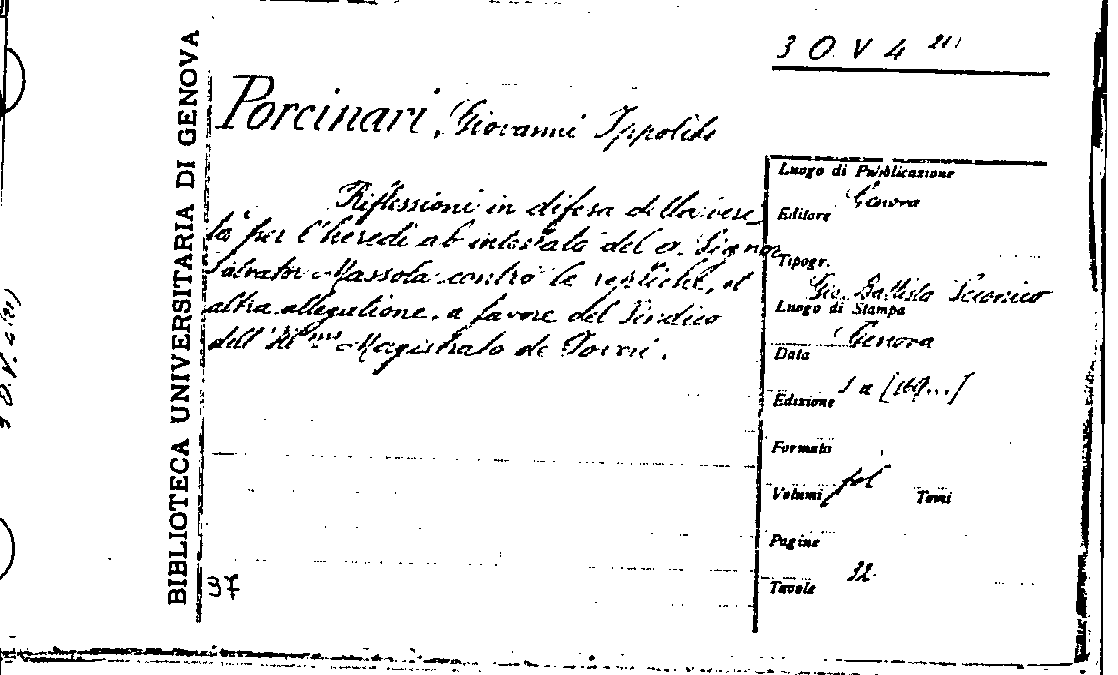 3 O. V. 4
BIBLIOTECA UNIVERSITARIA DI GENOVA
Porcinari, Giovanni Ippolito
Riflessioni in difesa della veri_
tà per l'heredi ab intestato del q. Signor
Salvator Massola contro le repliche, et
altra allegatione, a favore del Sindico
dell' Ill.mo Magistrato de
Luogo di Pubblicazione
Genova
Editore
Tipogr.
Gio. Battista Scionico
Luogo di Stampa
Genova
Data
s a [169...]
Edizione
Formato
fol
Volumi Tomi
Pagine
32
Tavole
37